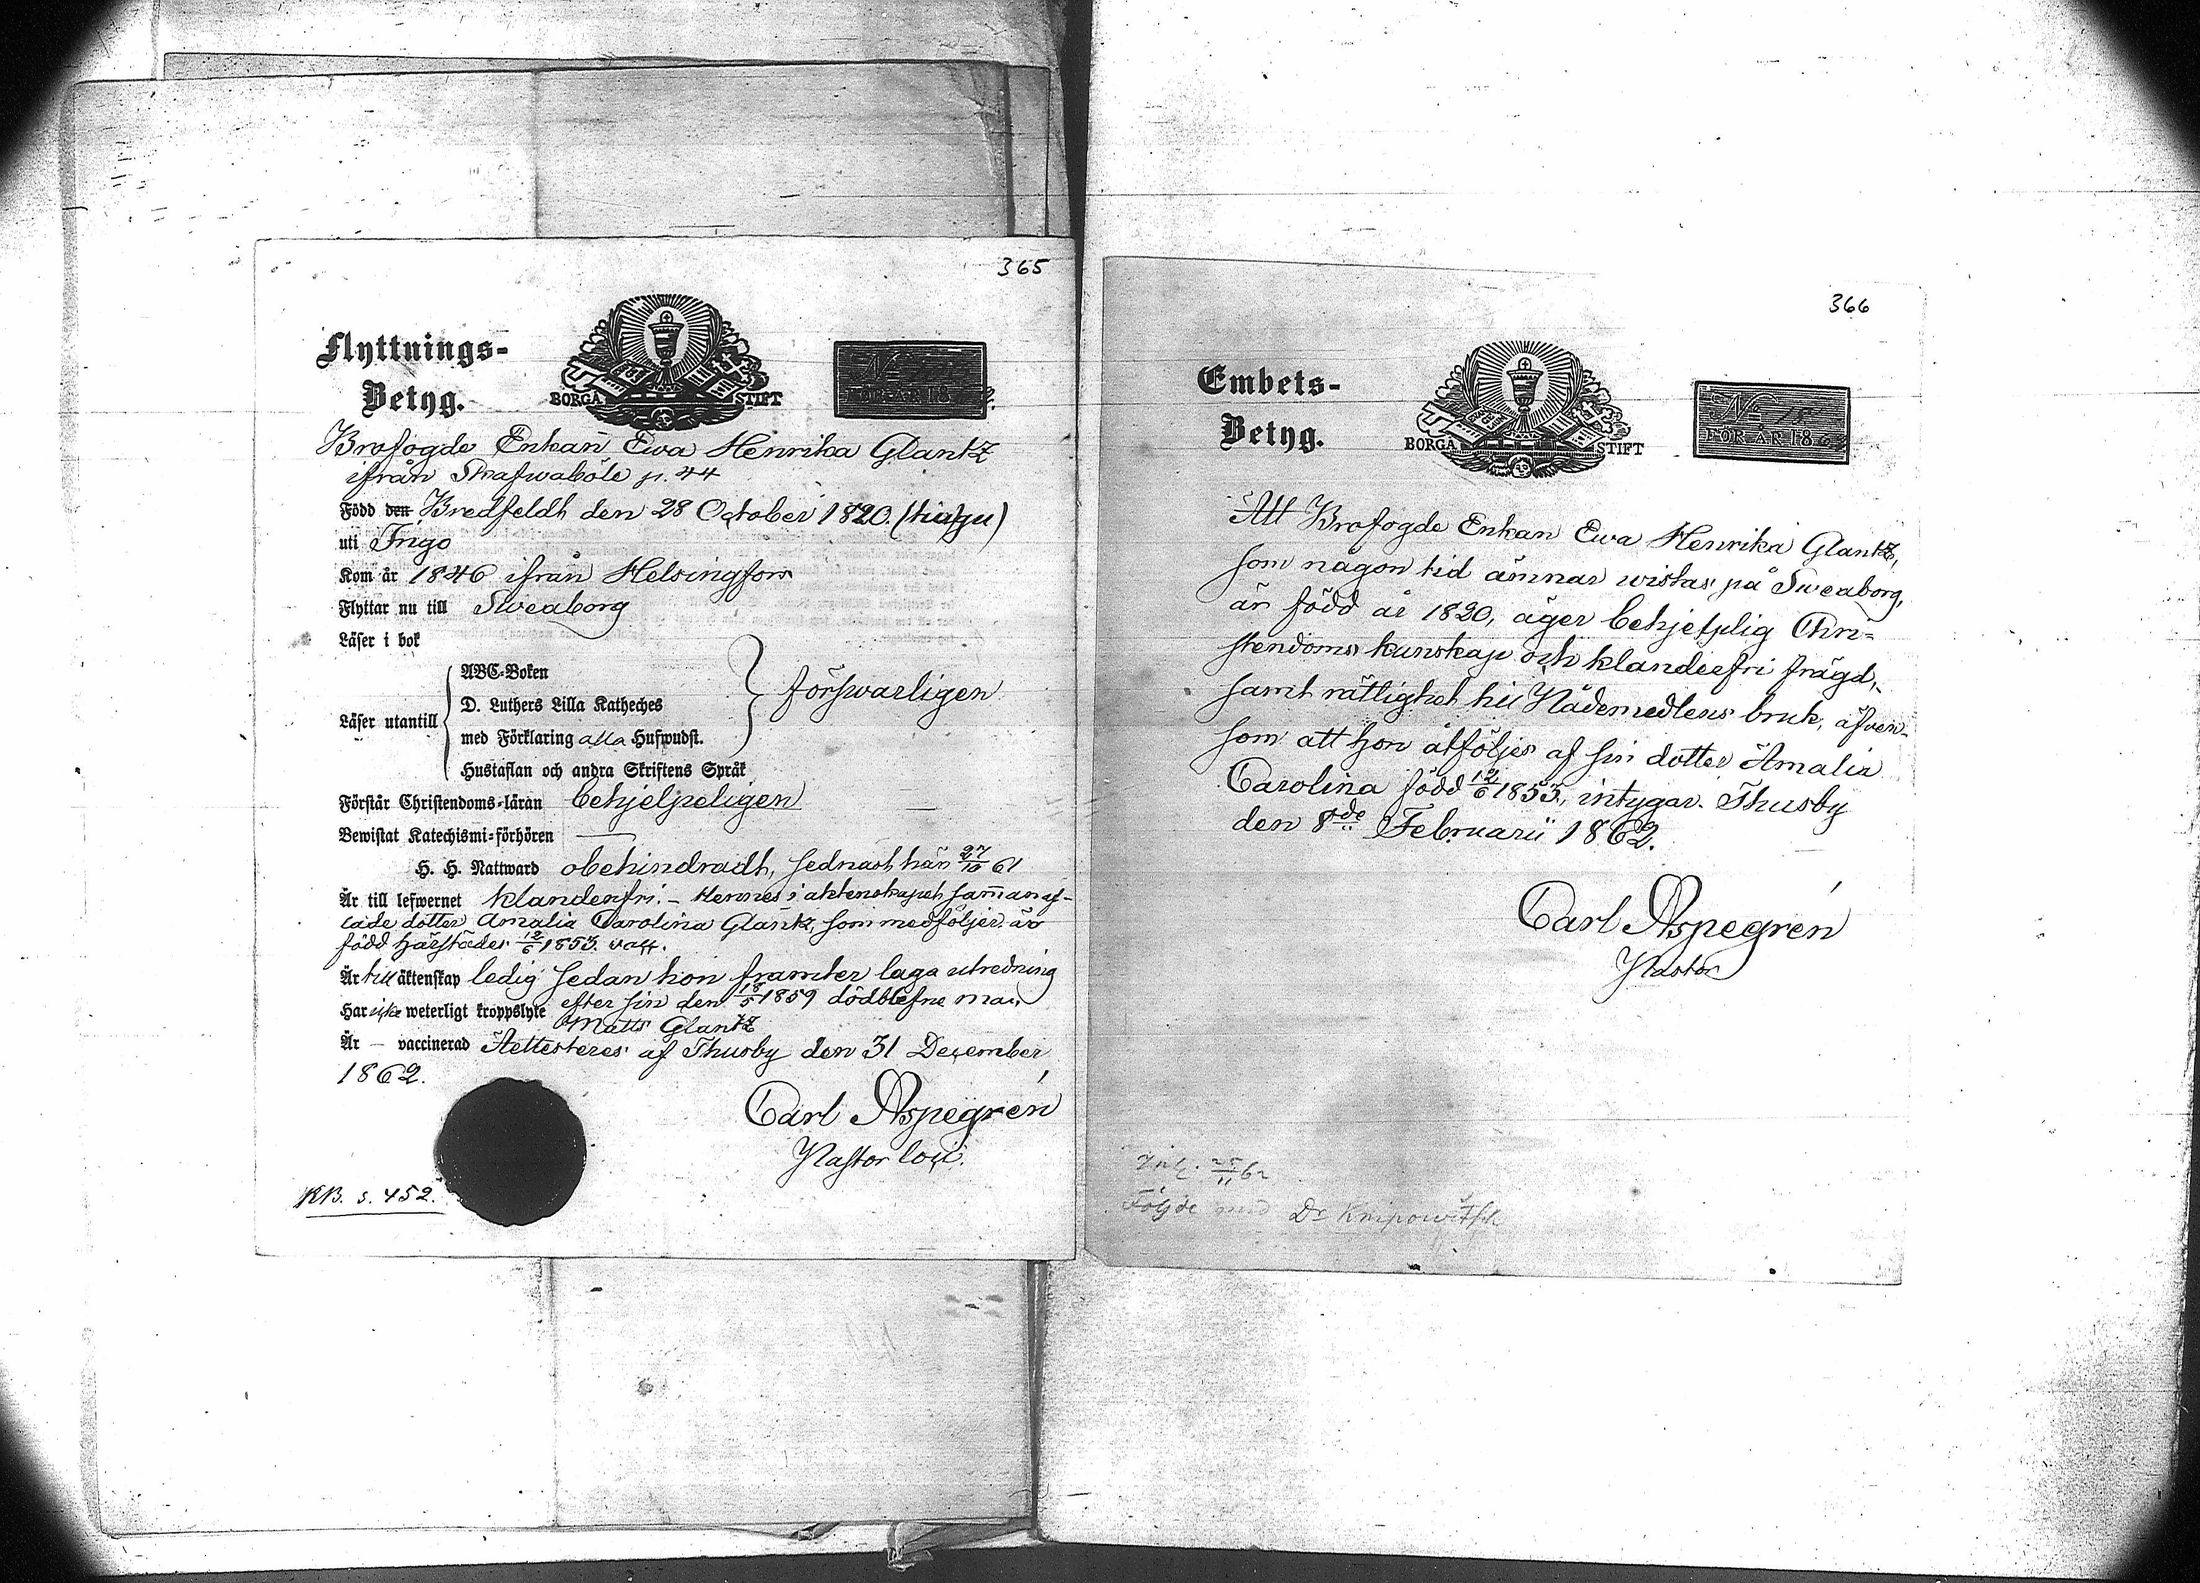 365
Flyttnings-
Betyg.
BORGÅ STIFT
No
FÖR ÅR 18
Brofogde Enkan Ewa Henrika Glantz
ifrån Skafwaböle p. 44
Född den Bredfeldt den 28 October 1820. (tiugu)
uti Trigo
Kom år 1846 ifrån Helsingfors
Flyttar nu till Sweaborg
Läser i bok
Läser utantill
ABC-Boken
D. Luthers Lilla Katheches
med Förklaring alla Hufwudst.
Hustaflan och andra Skriftens Språk
försvarligen
Förstår Christendoms-läran behjelpeligen
Bewistat Katechismi-förhören —
H. H. Nattward obehindradt, sednast här 27/10 61
Är till lefwernet klanderfri. – Hennes i äktenskapet samanaf-
lade dotter Amalia Carolina Glantz, som medföljer, är
född härstädes 12/6 1853. vacc.
Är till äktenskap ledig sedan hon framter laga utredning
efter sin den 18/5 1859 dödblefne man
Har icke weterligt kroppslyte Matts Glantz
Är — vaccinerad Attesteres af Thusby den 31 December
1862.
Carl Aspegrén
Pastor loci.
KB. s. 452.
366
Embets-
Betyg.
BORGÅ STIFT
No 18
FÖR ÅR 1862
Att Brofogde Enkan Ewa Henrika Glantz,
som någon tid ämnar wistas på Sweaborg,
är född år 1820, äger behjelplig Chri-
stendoms kunskap och klanderfri frägd,
samt rättighet till Nådemedlens bruk, äfven-
som att hon åtföljes af sin dotter Amalia
Carolina född 12/6 1853, intygar. Thusby
den 8de Februarii 1862.
Carl Aspegrén
Pastor
25/11 62
Följde med Dr Knipowitsch